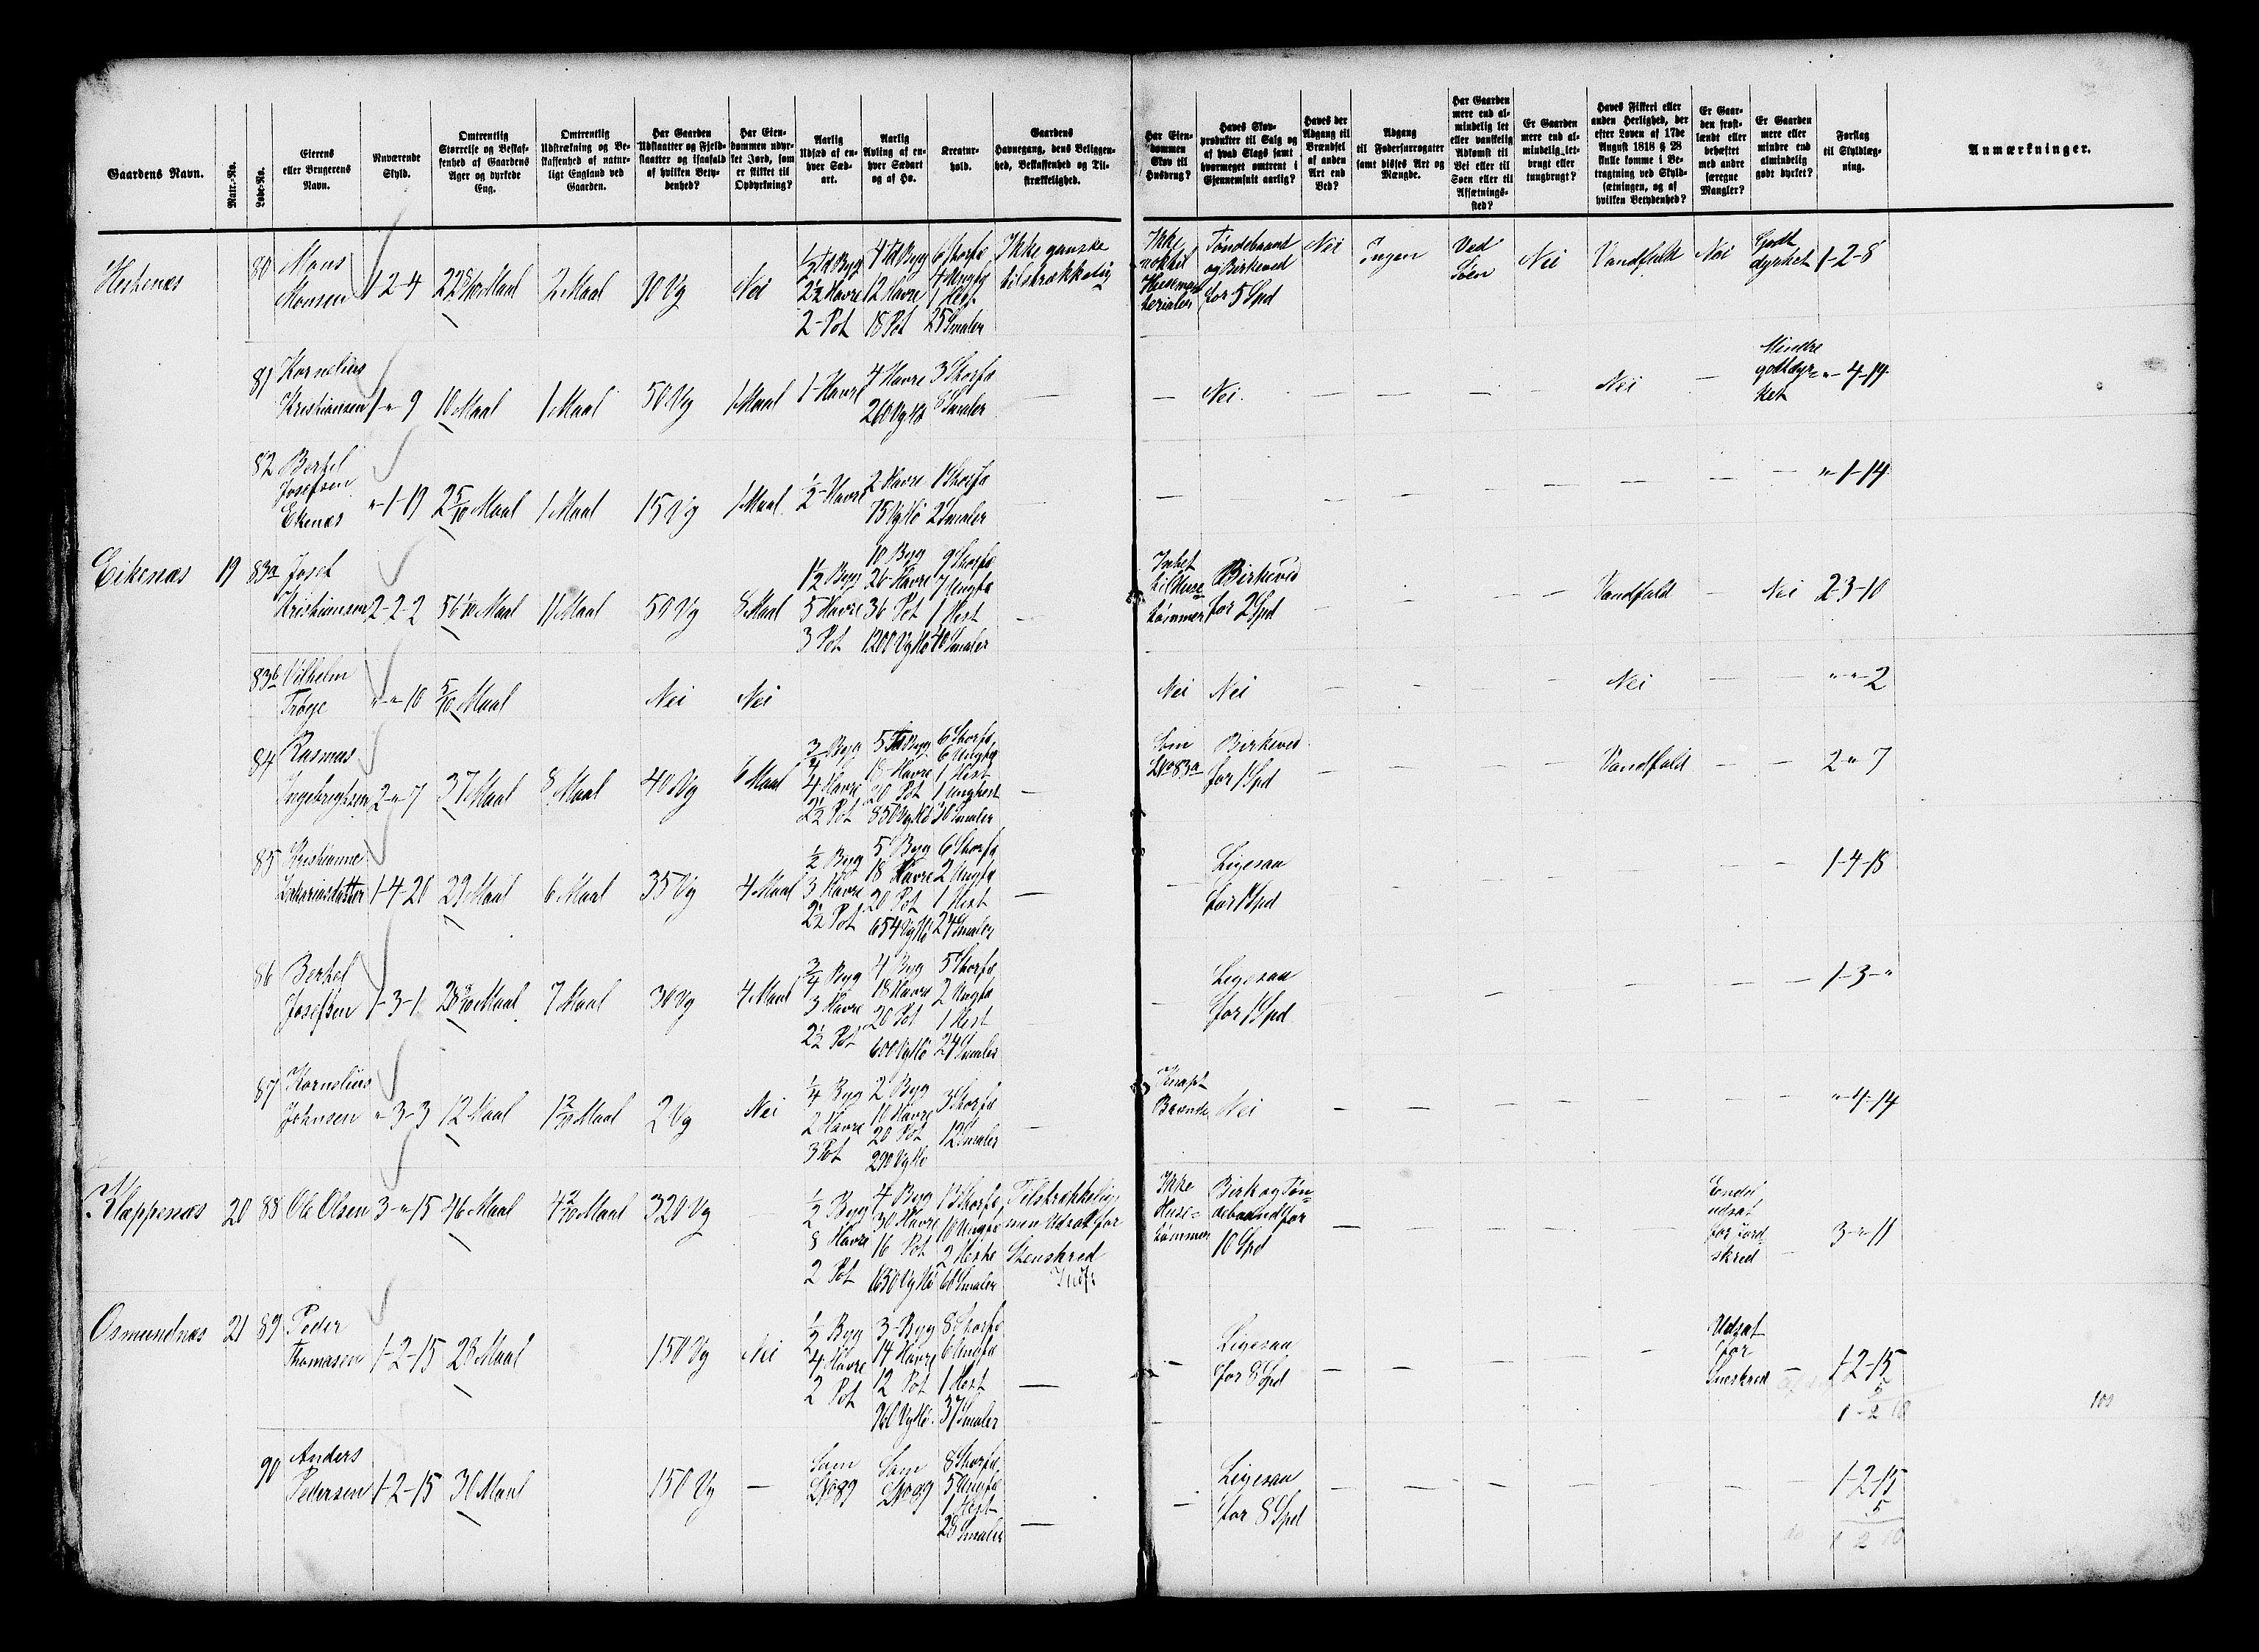 Gaardens Navn.
Matr.-No.
Løbe-No.
Eierens
eller Brugerens
Navn.
Nuværende
Skyld.
Omtrentlig
Størrelse og Beskaf-
fenhed af Gaardens
Ager og dyrkede
Eng.
Omtrentlig
Udstrækning og Be-
skaffenhed af natur-
ligt England ved
Gaarden.
Har Gaarden
Udslaatter og Fjeld-
slaatter og isaafald
af hvilken Bety-
denhed?
Har Eien-
dommen udyr-
ket Jord, som
er skikket til
Opdyrkning?
Aarlig
Udsæd af en-
hver Sæd-
art.
Aarlig
Avling af en-
hver Sædart
og af Hø.
Kreatur-
hold.
Gaardens
Havnegang, dens Beliggen-
hed, Beskaffenhed og Til-
strækkelighed.
Har Eien-
dommen
Skov til
Husbrug?
Haves Skov-
produkter til Salg og
af hvad Slags samt
hvormeget omtrent i
Gjennemsnit aarlig?
Haves der
Adgang til
Brændsel
af anden
Art end
Ved?
Adgang
til Fodersurrogater
samt disses Art og
Mængde.
Har Gaarden
mere end al-
mindelig let
eller vanskelig
Adkomst til
Vei eller til
Søen eller til
Afsætnings-
sted?
Er Gaarden
mere end al-
mindelig let-
brugt eller
tungbrugt?
Haves Fiskeri eller
anden Herlighed, der
efter Loven af 17de
August 1818 § 28
skulle komme i Be-
tragtning ved Skyld-
sætningen, og af
hvilken Betydenhed?
Er Gaar-
den frost-
lændt eller
beheftet
med andre
særegne
Mangler?
Er Gaarden
mere eller
mindre end
almindelig
godt dyrket?
Forslag
til Skyldlæg-
ning.
Anmærkninger.
Hestenæs
80
Mons
Monsen
1-2-4
22 8/10 Maal
2 Maal
90 Vg
Nei
1/2 Td Byg
2 1/2 Havre
2 - Pot
4 Td Byg
12 Havre
18 Pot
6 Storfæ
4 Ungfæ
1 Hest
25 Smaler
Ikke ganske
tilstrækkelig
Ikke
nok til
Husema-
terialer
Tøndebaand
og Birkeved
for 5 Spd
Nei
Ingen
Ved
Søen
Nei
Vandfald
Nei
Godt
dyrket
1-2-8
81
Kornelius
Kristiansen
1-"-9
10 Maal
1 Maal
50 Vg
1 Maal
1 - Havre
4 Havre
260 Vg Hø
3 Storfæ
8 Smaler
—
—
Nei.
Nei
Mindre
godt dyr-
ket
"-4-14
82
Bertel
Josefsen
Ekenæs
"-1-19
2 5/10 Maal
1 Maal
15 Vg
1 Maal
1/2 - Havre
2 Havre
75 Vg Hø
1 Storfæ
2 Smaler
—
"-1-14
Eikenæs
19
83a
Josef
Kristiansen
2-2-2
56 4/10 Maal
11 Maal
50 Vg
8 Maal
1 1/2 Byg
5 Havre
3 Pot
10 Byg
26 - Havre
36 Pot
1200 Vg Hø
9 Storfæ
7 Ungfæ
1 Hest
40 Smaler
—
Intet
til Huse-
tømmer
Birkeved
for 2 Spd
Vandfald
—
Nei
2-3-10
83b
Vilhelm
Trøye
"-"-10
5/10 Maal
Nei
Nei
Nei
Nei
Nei
"-"-2
84
Rasmus
Ingebrigtsen
2-"-7
37 Maal
8 Maal
40 Vg
6 Maal
3/4 Byg
4 Havre
2 1/2 Pot
5 Td Byg
18 - Havre
20 Pot
850 Vg Hø
6 Storfæ
6 Ungfæ
1 Hest
1 Unghest
30 Smaler
—
Som
LNo 83a
Birkeved
for 1 Spd
Vandfald
2-"-7
85
Kristianne
Zakariasdatter
1-4-20
29 Maal
6 Maal
35 Vg
4 Maal
1/2 Byg
3 Havre
2 1/2 Pot
5 Byg
18 Havre
20 Pot
654 Vg Hø
6 Storfæ
2 Ungfæ
1 Hest
24 Smaler
—
Ligesaa
for 1 Spd
1-4-18
86
Bertel
Josefsen
1-3-1
28 3/10 Maal
7 Maal
30 Vg
4 Maal
3/4 Byg
3 Havre
2 1/2 Pot
4 Byg
18 Havre
20 Pot
600 Vg Hø
5 Storfæ
2 Ungfæ
1 Hest
24 Smaler
Ligesaa
for 1 Spd
1-3-"
87
Kornelius
Johnsen
"-3-3
12 Maal
1 2/10 Maal
2 Vg
Nei
1/4 Byg
2 Havre
3 Pot
2 Byg
10 Havre
20 Pot
290 Vg Hø
3 Storfæ
12 Smaler
—
Knapt
Brænde
Nei
"-4-14
Klæppenæs
20
88
Ole Olsen
3-"-15
46 Maal
4 2/10 Maal
320 Vg
1/2 Byg
8 Havre
2 Pot
4 Byg
30 Havre
16 Pot
1650 Vg Hø
13 Storfæ
10 Ungfæ
2 Heste
60 Smaler
Tilstrækkelig
men Udsat for
Stenskred
Ikke
Huse-
tømmer
Birk og Tøn-
debaand for
10 Spd
Endel
udsat
for Jord-
skred
3-"-11
Osmundnæs
21
89
Peder
Thomasen
1-2-15
28 Maal
150 Vg
Nei
1/2 Byg
4 Havre
2 Pot
3 - Byg
14 Havre
12 Pot
960 Vg Hø.
8 Storfæ
6 Ungfæ
1 Hest
37 Smaler
—
Ligesaa
for 8 Spd
Udsat
for
Sneskred
1-2-15
5
1-2 10
109
90
Anders
Pedersen
1-2-15
30 Maal
150 Vg
—
Som
LNo 89
Som
LNo 89
8 Storfæ
5 Ungfæ
1 Hest
28 Smaler
—
Ligesaa
for 8 Spd
1-2-15
5
do
1 2 10